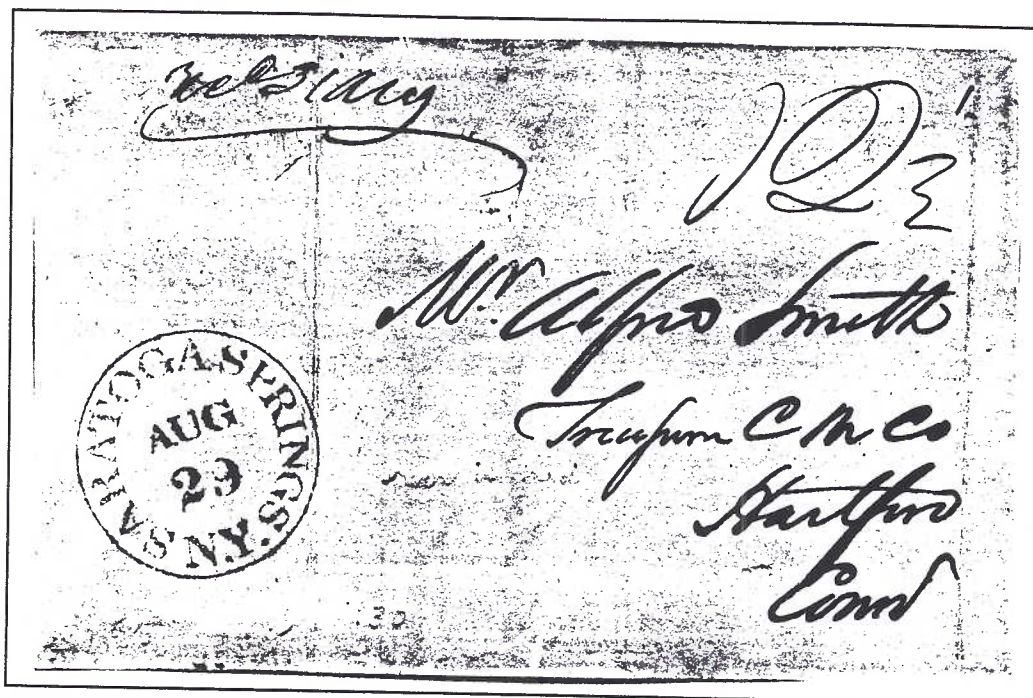 Mr. Alfred Smith
Treasurer C M Co
Hartford
Conn
SARATOGA SPRINGS
AUG
29
N.Y.